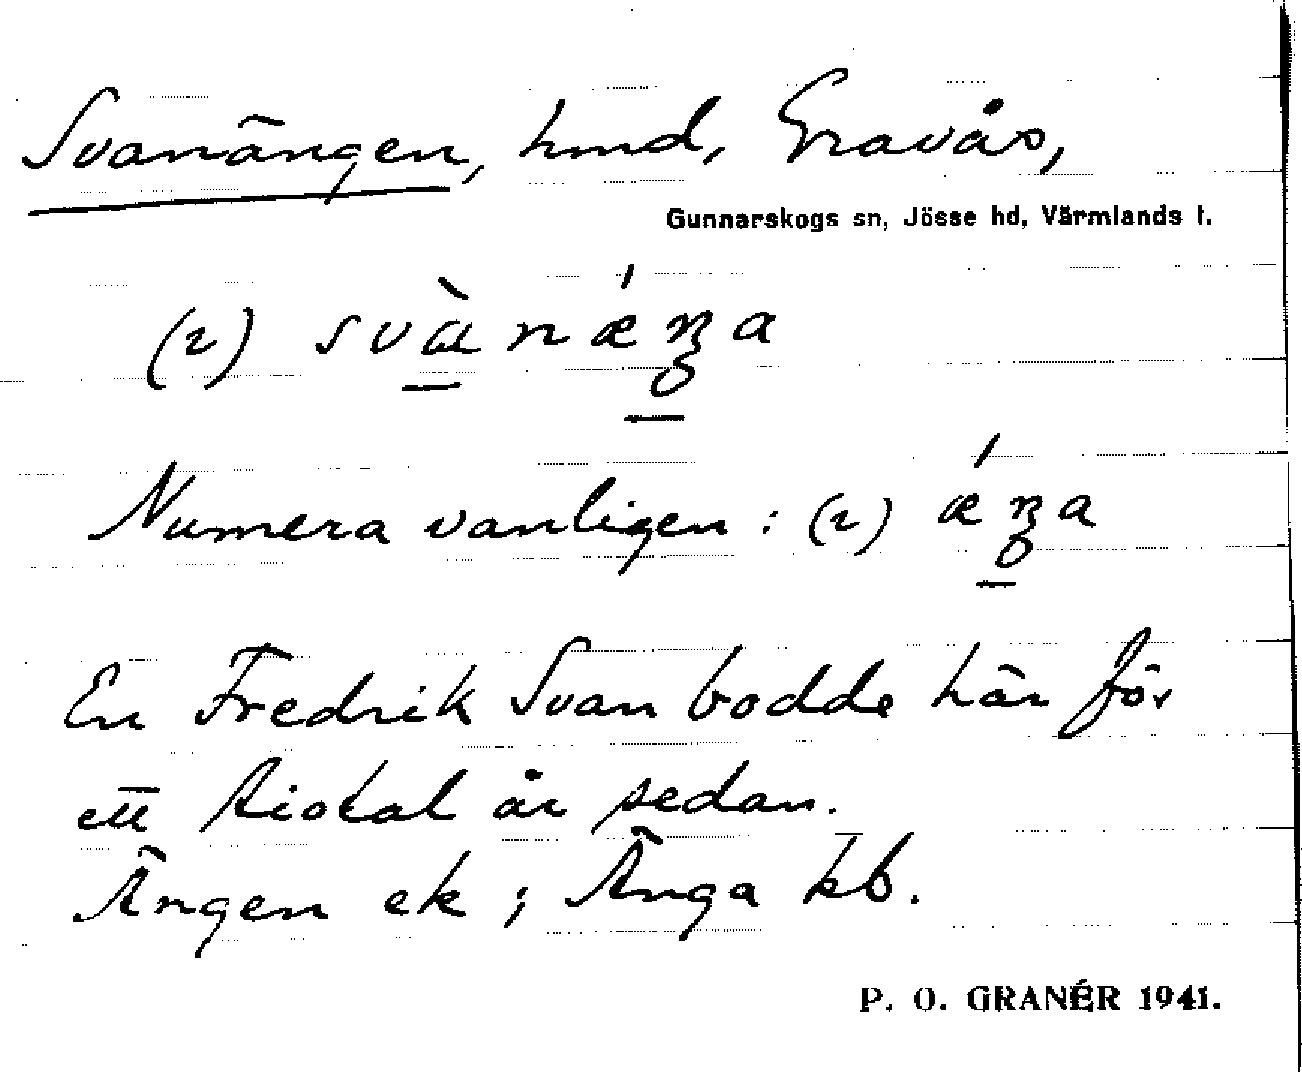 Svanängen, hmd, Gravås,
Gunnarskogs sn, Jösse hd, Värmlands l.
(2) svànǽŋa
Numera vanligen: (2) ǽŋa
En Fredrik Svan bodde här för
ett tiotal år sedan.
Ängen ek; Änga kb.
P. O. GRANÉR 1941.